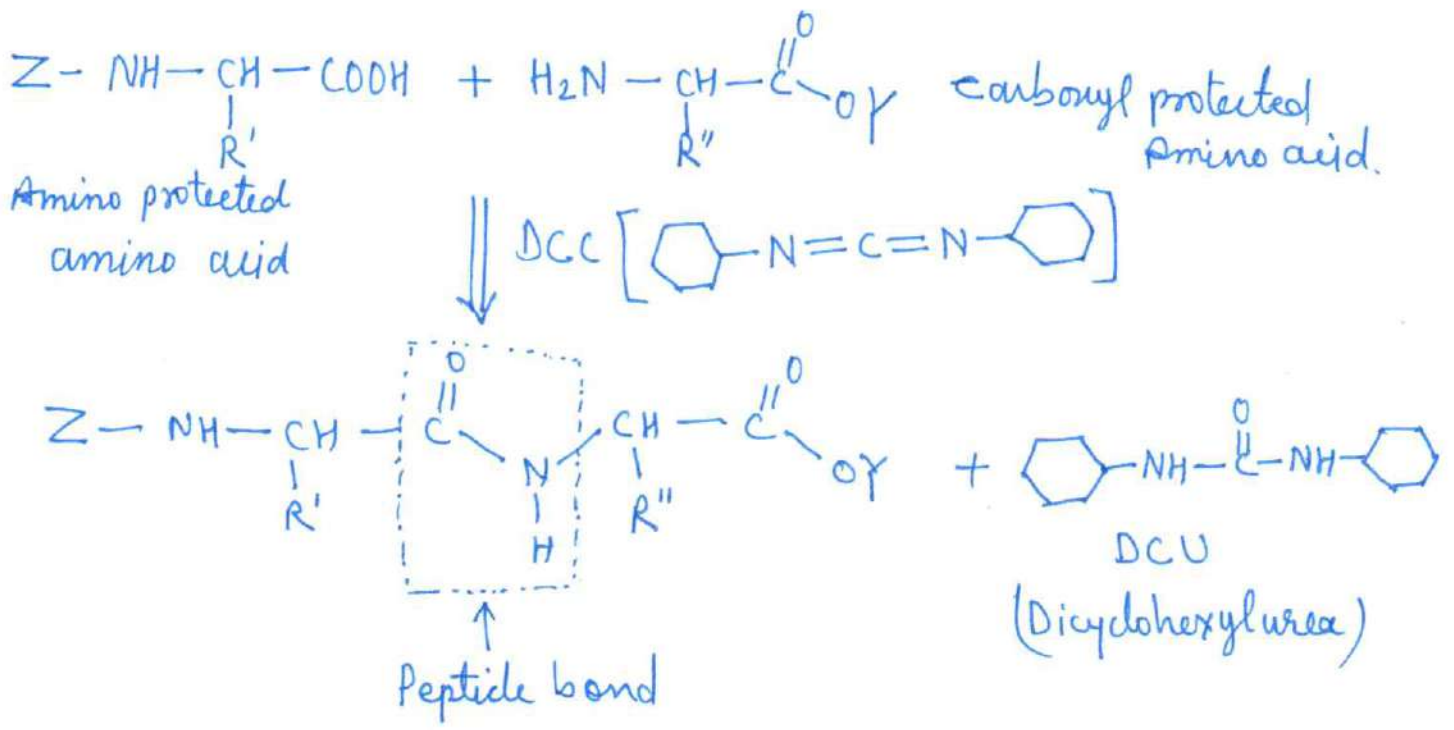 Z- NH-CH-COOH + H2N-CH-C-OY carbonyl protected
O
R' R" Amino acid.
Amino protected
amino acid
DCC [ -N=C=N- ]
O O O
Z- NH-CH-C-N-CH-C-OY + -NH-C-NH-
R' H R"
DCU
(Dicyclohexylurea)
Peptide bond